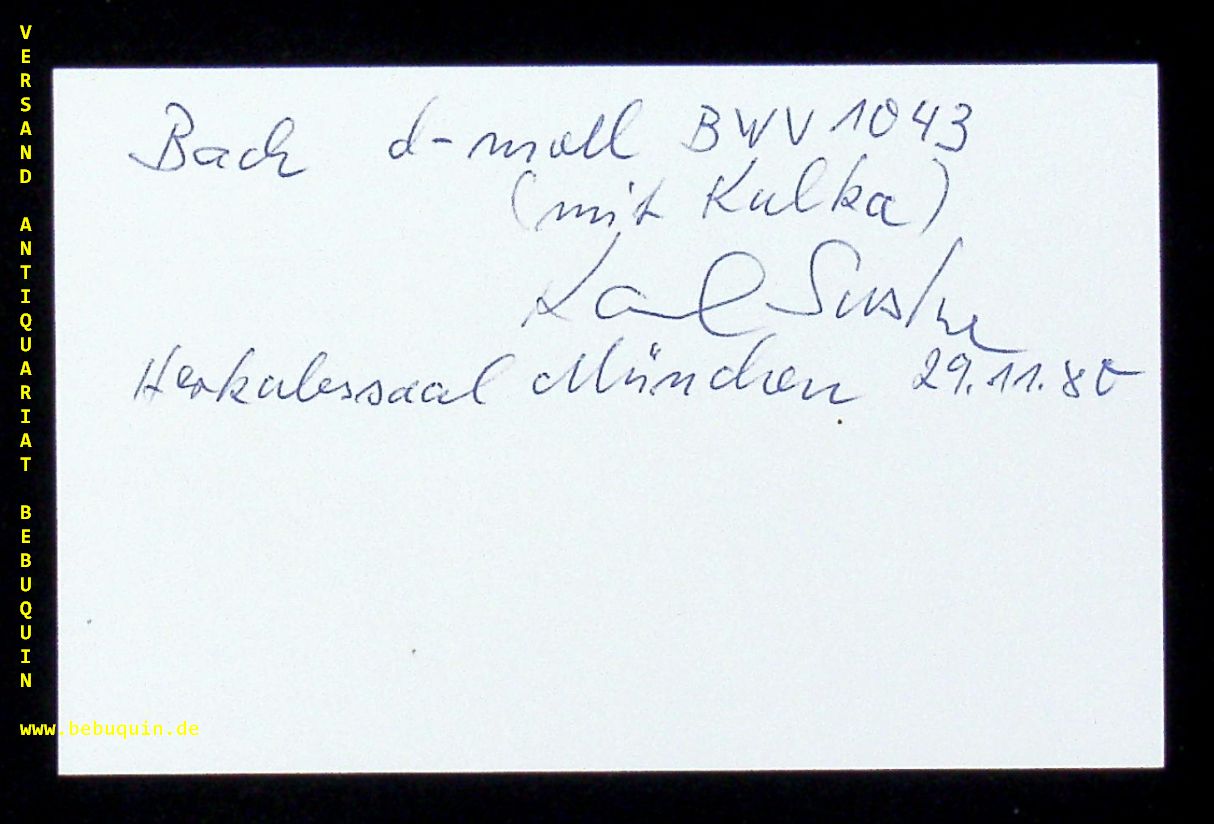 VERSAND ANTIQUARIAT BEBUQUIN
Bach d-moll BWV 1043
(mit Kulka)
Karl Suske
Herkulessaal München 29.11.80
www.bebuquin.de